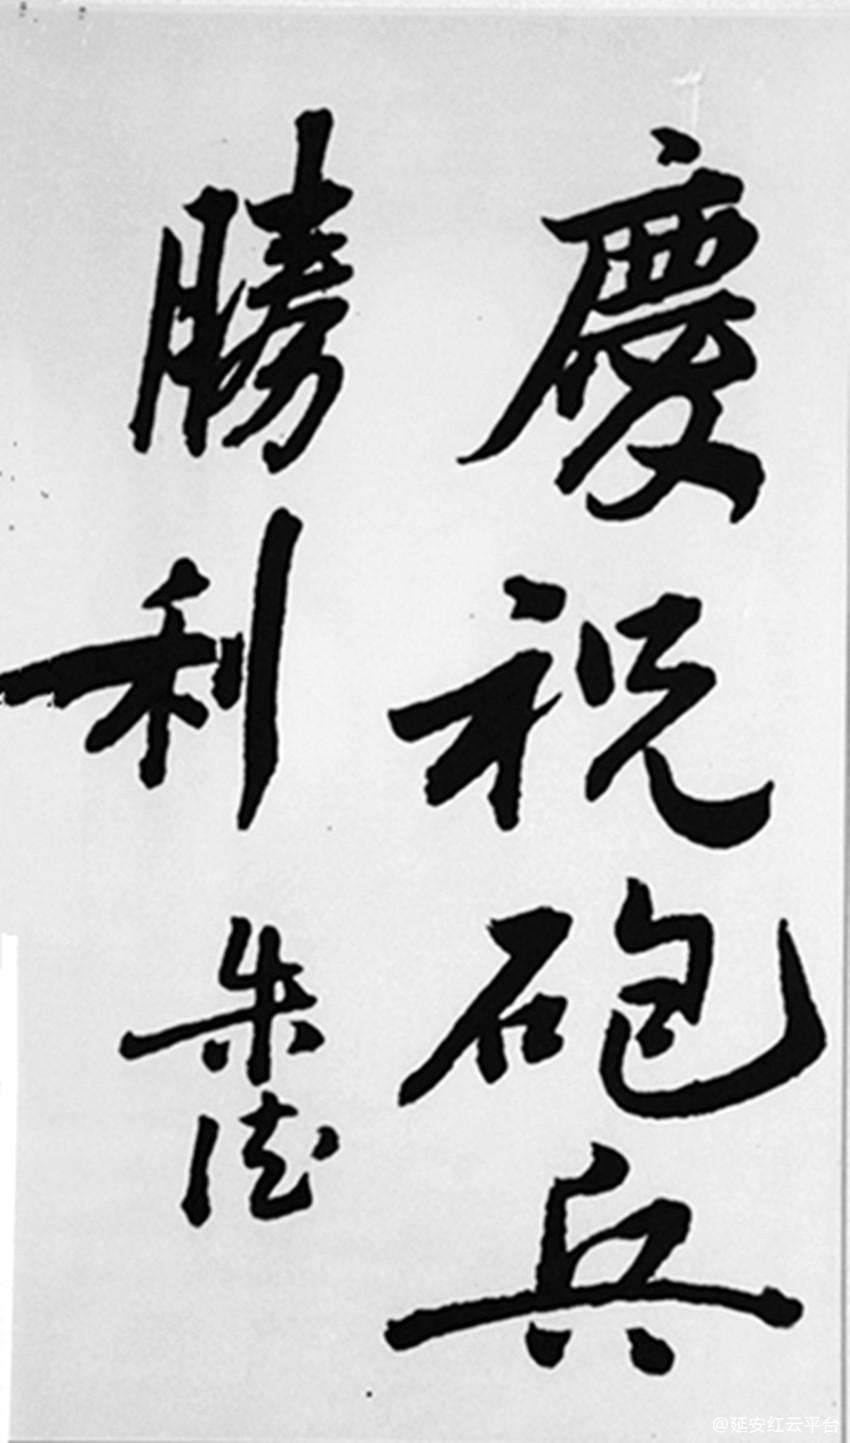 慶祝砲兵
勝利
朱德
@延安红云平台